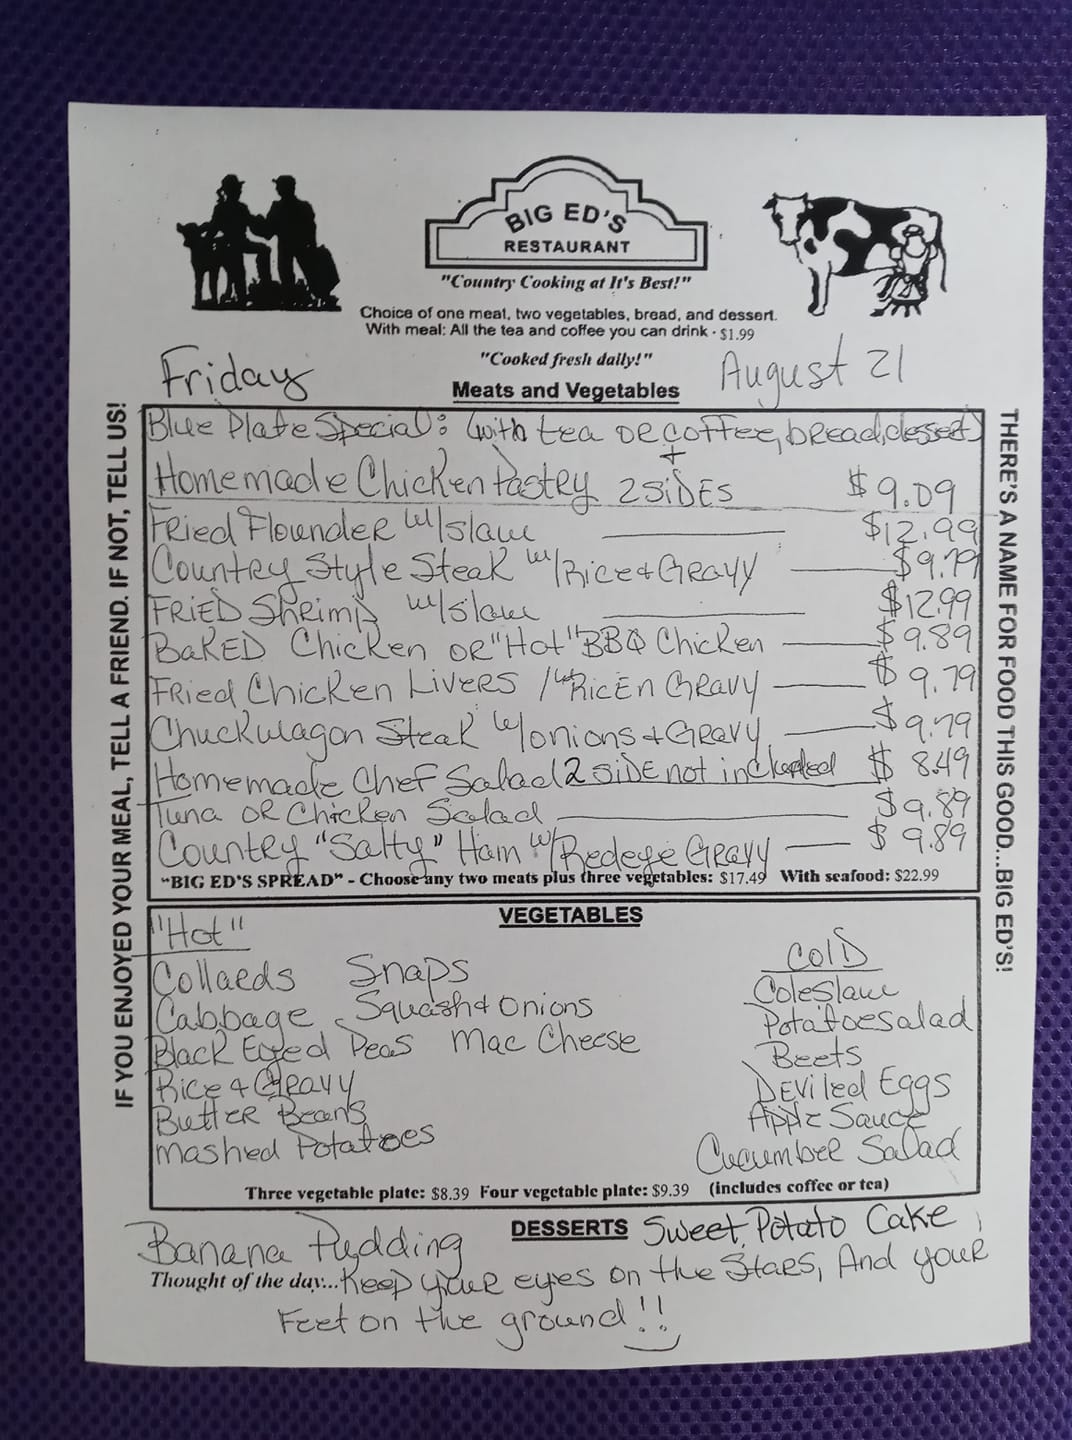 BIG ED'S
RESTAURANT
"Country Cooking at It's Best!"
Choice of one meat, two vegetables, bread, and dessert.
With meal: All the tea and coffee you can drink · $1.99
"Cooked fresh daily!"
Friday
August 21
Meats and Vegetables
IF YOU ENJOYED YOUR MEAL, TELL A FRIEND. IF NOT, TELL US!
THERE'S A NAME FOR FOOD THIS GOOD...BIG ED'S!
Blue Plate Special: (with tea or coffee, bread, dessert)
+
Homemade Chicken Pastry 2 SIDES $9.09
Fried Flounder w/slaw $12.99
Country Style Steak w/Rice + Gravy $9.79
FRIED Shrimp w/slaw $12.99
BAKED Chicken or "Hot" BBQ Chicken $9.89
Fried Chicken Livers /w RicEn Gravy $9.79
Chuckwagon Steak w/onions + Gravy $9.79
Homemade Chef Salad 2 side not included $8.49
Tuna or Chicken Salad $9.89
Country "Salty" Ham w/Redeye Gravy $9.89
"BIG ED'S SPREAD" - Choose any two meats plus three vegetables: $17.49 With seafood: $22.99
VEGETABLES
"Hot"
Collards Snaps
Cabbage Squash + Onions
Black Eyed Peas Mac Cheese
Rice + Gravy
Butter Beans
Mashed Potatoes
Cold
Coleslaw
Potatoe salad
Beets
Deviled Eggs
Apple Sauce
Cucumber Salad
Three vegetable plate: $8.39 Four vegetable plate: $9.39 (includes coffee or tea)
DESSERTS Sweet Potato Cake
Banana Pudding
Thought of the day... Keep your eyes on the Stars, And your
Feet on the ground!!